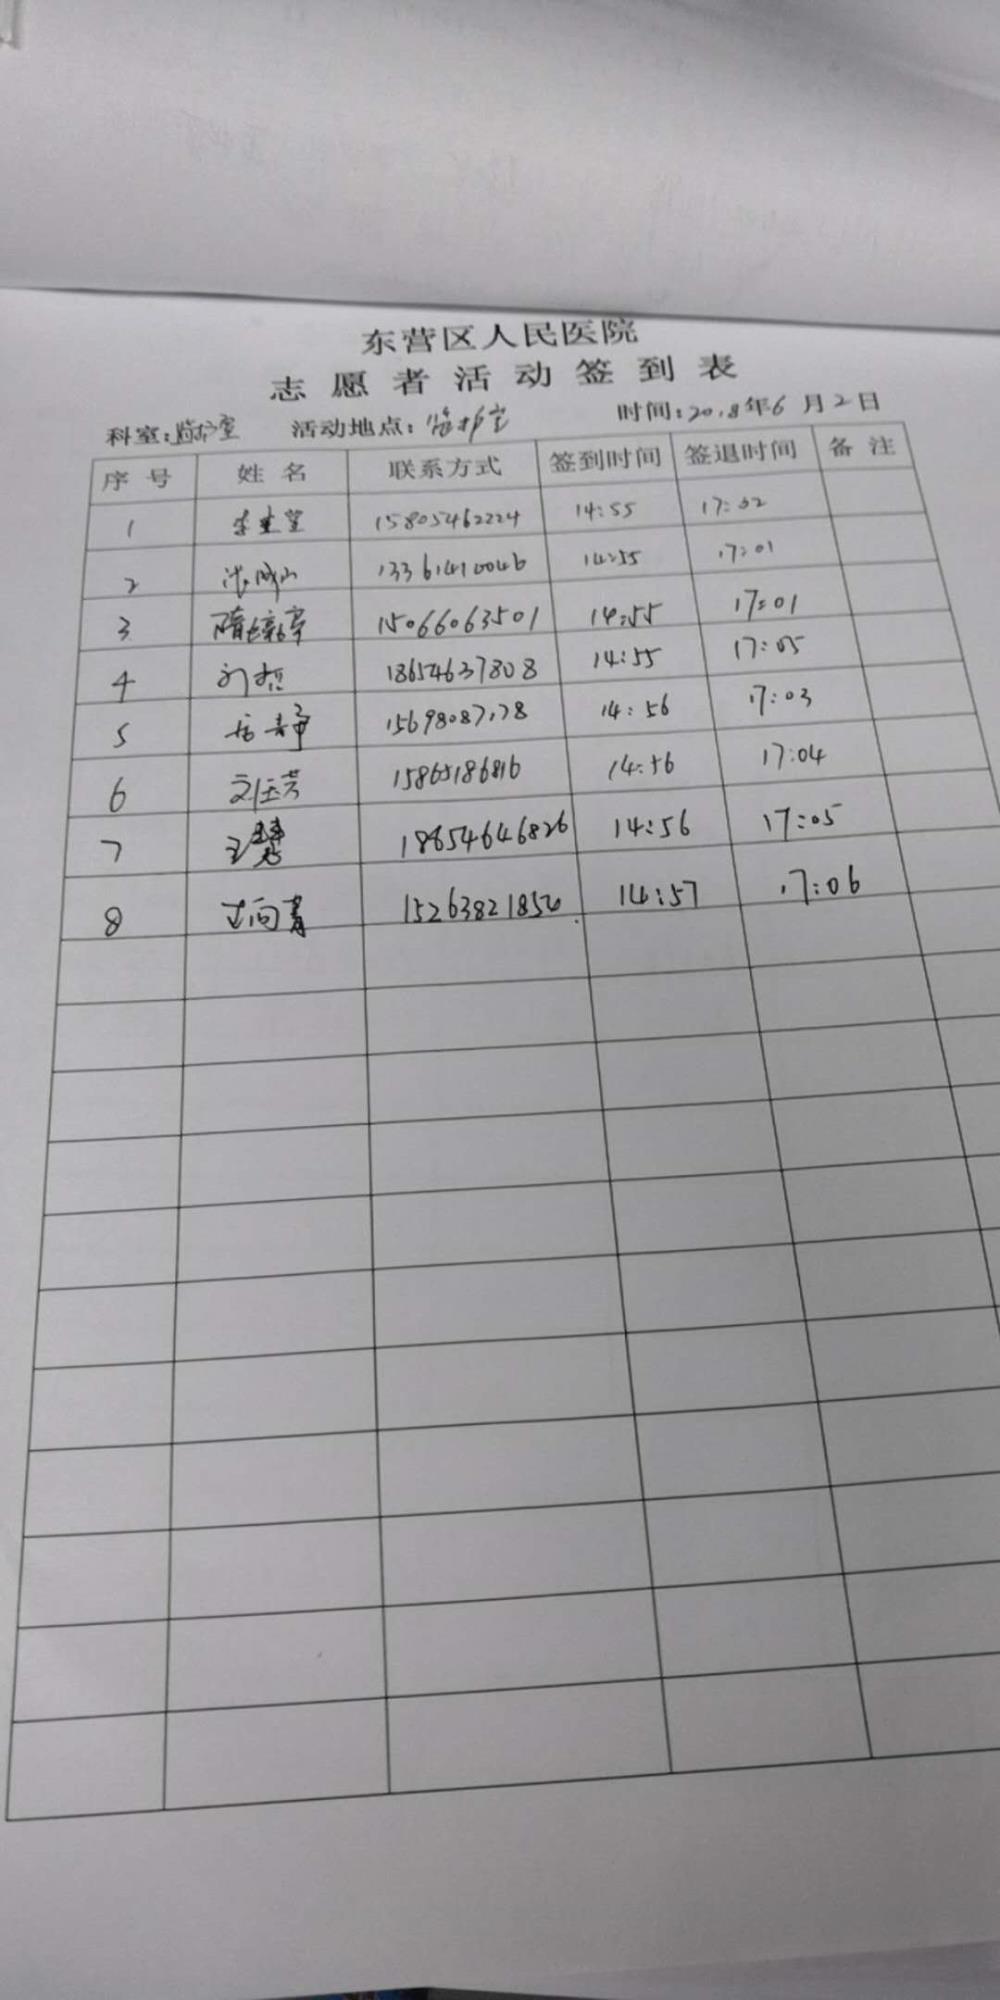 东营区人民医院
志愿者活动签到表
科室:监护室 活动地点:监护室 时间:2018年6月2日
序号 姓名 联系方式 签到时间 签退时间 备注
1 15805462224 14:55 17:02
2 13361410046 14:55 17:01
3 隋婷婷 15066063501 14:55 17:01
4 刘哲 18654637808 14:55 17:05
5 静 15698087178 14:56 17:03
6 刘玉芳 15865186816 14:56 17:04
7 王 18654646826 14:56 17:05
8 向青 14:57 17:06